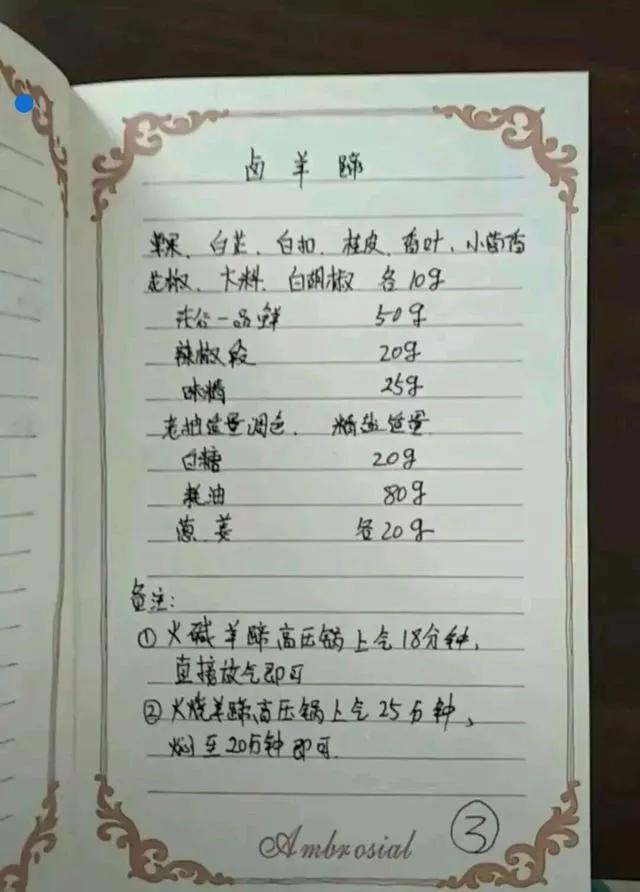 卤羊蹄
草果、白芷、白扣、桂皮、香叶、小茴香
花椒、大料、白胡椒 各10g
味谷一品鲜 50g
辣椒段 20g
味精 25g
老抽适量调色、 精盐适量
白糖 20g
耗油 80g
葱、姜 各20g
备注:
① 火碱羊蹄高压锅上气18分钟,
直接放气即可
② 火烧羊蹄高压锅上气25分钟,
焖至20分钟即可.
Ambrosial
③